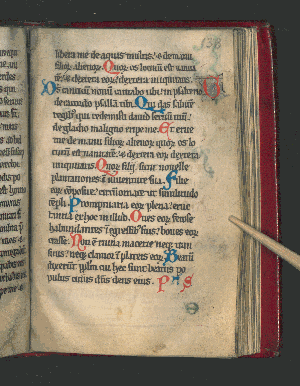 libera me de aquis multis. & de manu
filioꝝ alienoꝝ. Quoꝝ os locutū est uanita
tē. & dextera eoꝝ dextera iniquitatis.
Ds canticū nouū cantabo tibi in psalterio
decacordo psallā tibi. Qui das salutē
regibꝫ qui redemisti dauid seruū tuū
de gladio maligno eripe me. Et erue
me de manu filioꝝ alienoꝝ quoꝝ os lo
cutū est uanitatē. & dextera eoꝝ dextera
iniquitatis. Quoꝝ filii sicut nouelle
plantationes ī iuuentute sua. Filie
eoꝝ cōposite circūornate ut similitudo
tēpli. Promptuaria eoꝝ plena eruc
tantia ex hoc in illud. Oues eoꝝ fetose
habundantes ī egressibꝫ suis boues eoꝝ
crasse. Non ē ruina macerie neqꝫ tran
situs neqꝫ clamor ī plateis eoꝝ. Beatū
dixerūt ipsm̄ cui hec sunt beatus po
pulus cuius dn̄s deus eius.